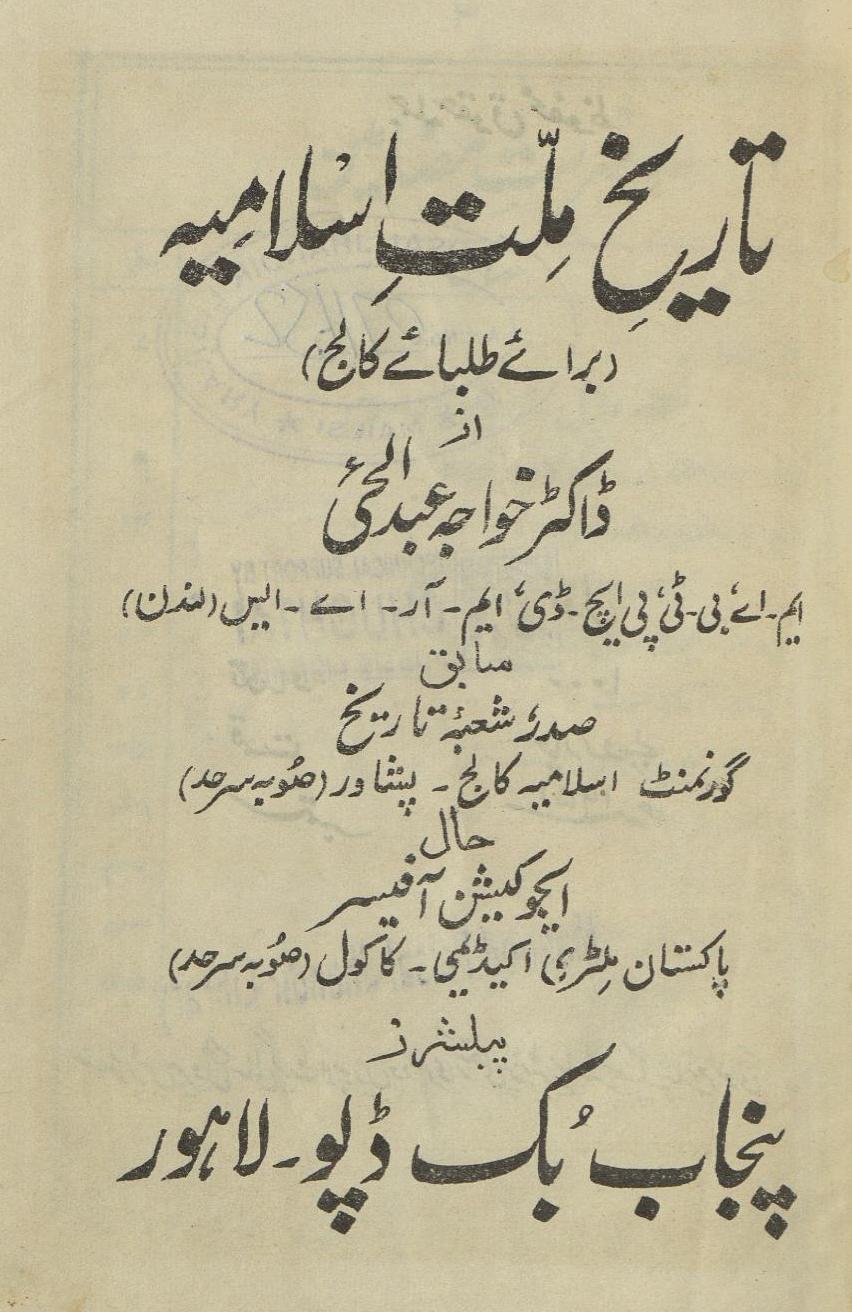 تاریخِ مِلّتِ اسْلامِیہ
(برائے طلبائے کالج)
از
ڈاکٹر خواجہ عبدالحئ
ایم۔اے، بی۔ٹی، پی ایچ۔ڈی، ایم۔ آر۔ اے۔ ایس (لندن)
سابق
صدر شعبۂ تاریخ
گورنمنٹ اسلامیہ کالج۔ پشاور (صُوبہ سرحد)
حال
ایجوکیشن آفیسر
پاکستان مِلٹری اکیڈیمی۔ کاکول (صُوبہ سرحد)
پبلشرز
پنجاب بُک ڈپو۔ لاہور